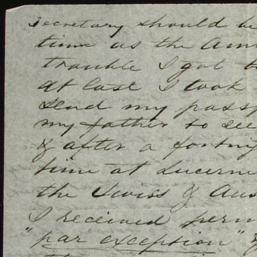 secretary should be
time as the Am
trouble I got
at last I took
send my pass
my father to see
& after a fortn
time at Lucerne
the Swiss & Aus
I received perm
"par exception"